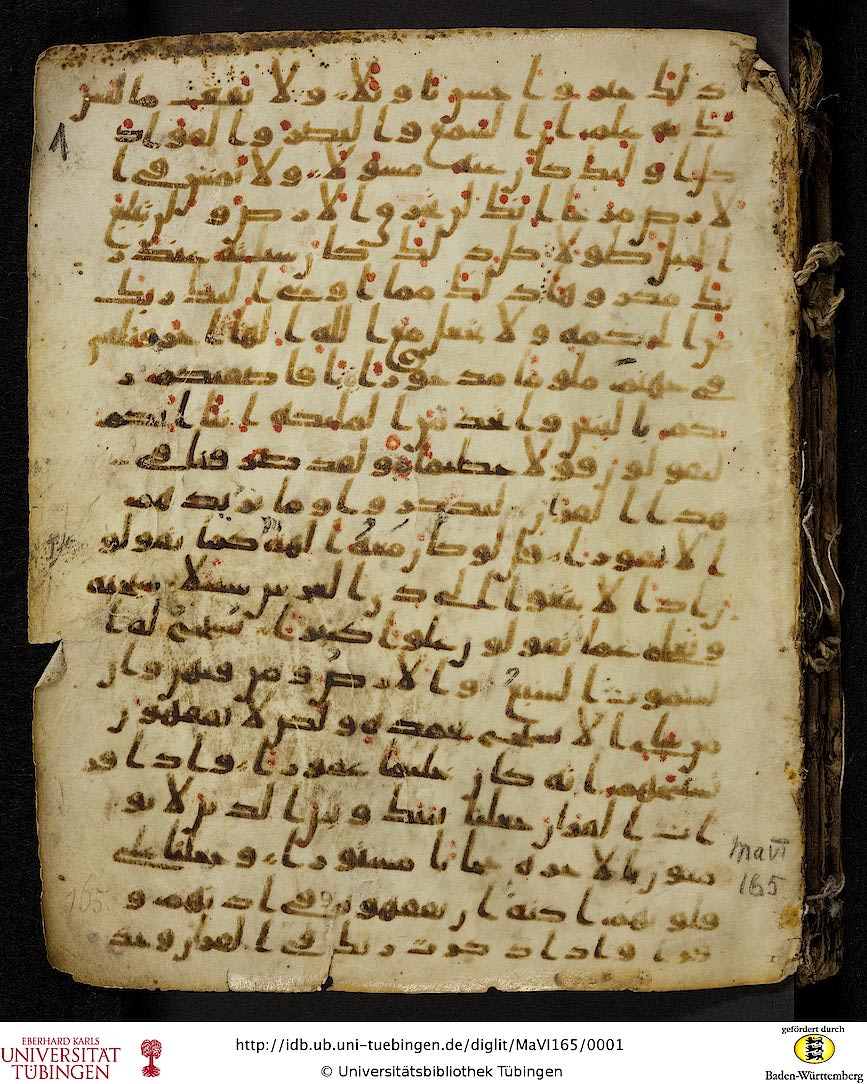 ذلك خير واحسن تاويلا ولا تقف ما ليس
1
لك به علم ان السمع والبصر والفواد
كل اولئك كان عنه مسولا ولا تمش في ا
لارض مرحا انك لن تخرق الارض ولن تبلغ
الجبل طولا كل ذلك كان سيئه عند ر
بك مكروها ذلك مما اوحى اليك ربك
من الحكمه ولا تجعل مع الله الها اخر فتلقى
في جهنم ملوما مدحورا افاصفيكم ر
بكم بالبنين واتخذ من الملئكه انثا انكم
لتقولون قولا عظيما ولقد صرفنا في
هذا القران ليذكروا وما يزيدهم
الا نفورا قل لو كان معه الهه كما تقولو
ن اذا لابتغوا الى ذي العرش سبيلا سبحنه
وتعلى عما يقولون علوا كبيرا تسبح له ا
لسموت السبع والارض ومن فيهن وان
من شي الا يسبح بحمده ولكن لا تفقهون
تسبيحهم انه كان حليما غفورا واذا قر
ات القران جعلنا بينك وبين الذين لا يو
منون بالاخره حجابا مستورا وجعلنا على
Ma VI
165
قلوبهم اكنه ان يفقهوه وفي اذنهم و
165
قرا واذا ذكرت ربك في القران وحده
EBERHARD KARLS
UNIVERSITÄT
TÜBINGEN
http://idb.ub.uni-tuebingen.de/diglit/MaVI165/0001
© Universitätsbibliothek Tübingen
gefördert durch
Baden-Württemberg